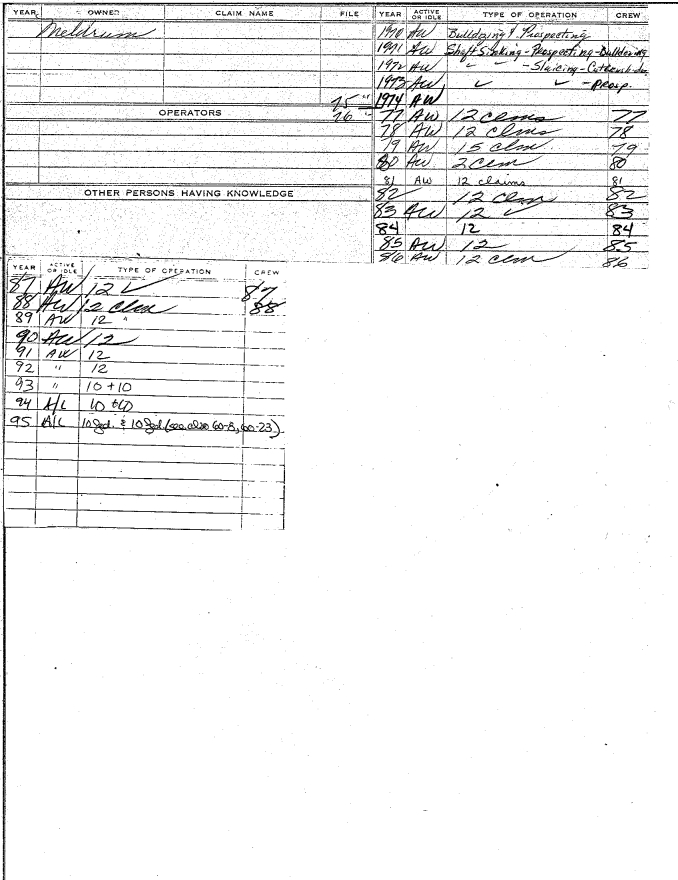 YEAR OWNER CLAIM NAME FILE
Meldrum
75 "
OPERATORS 76 "
OTHER PERSONS HAVING KNOWLEDGE
YEAR ACTIVE OR IDLE TYPE OF OPERATION CREW
1970 AW Bulldozing & Prospecting
1971 AW Shaft Sinking - Prospecting - Bulldozing
1972 AW " " - Sluicing
1973 AW ✓ ✓ - prosp.
1974 AW
77 AW 12 clms 77
78 AW 12 clms 78
79 AW 15 clm 79
80 AW 2 clm 80
81 AW 12 claims 81
82 12 clm 82
83 AW 12 ✓ 83
84 12 84
85 AW 12 85
86 AW 12 clm 86
YEAR ACTIVE OR IDLE TYPE OF OPERATION CREW
87 AW 12 ✓ 87
88 AW 12 clm 88
89 AW 12 "
90 AW 12
91 AW 12
92 " 12
93 " 10 + 10
94 A/L 10 + 10
95 A/L 10 Fed. & 10 Fed. (see also 60-8, 60-23)